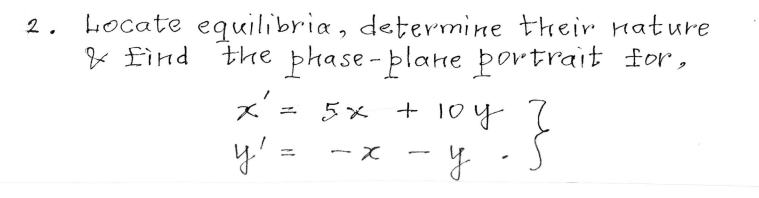 2. Locate equilibria, determine their nature
& find the phase-plane portrait for,
x' = 5x + 10y }
y' = -x - y . }